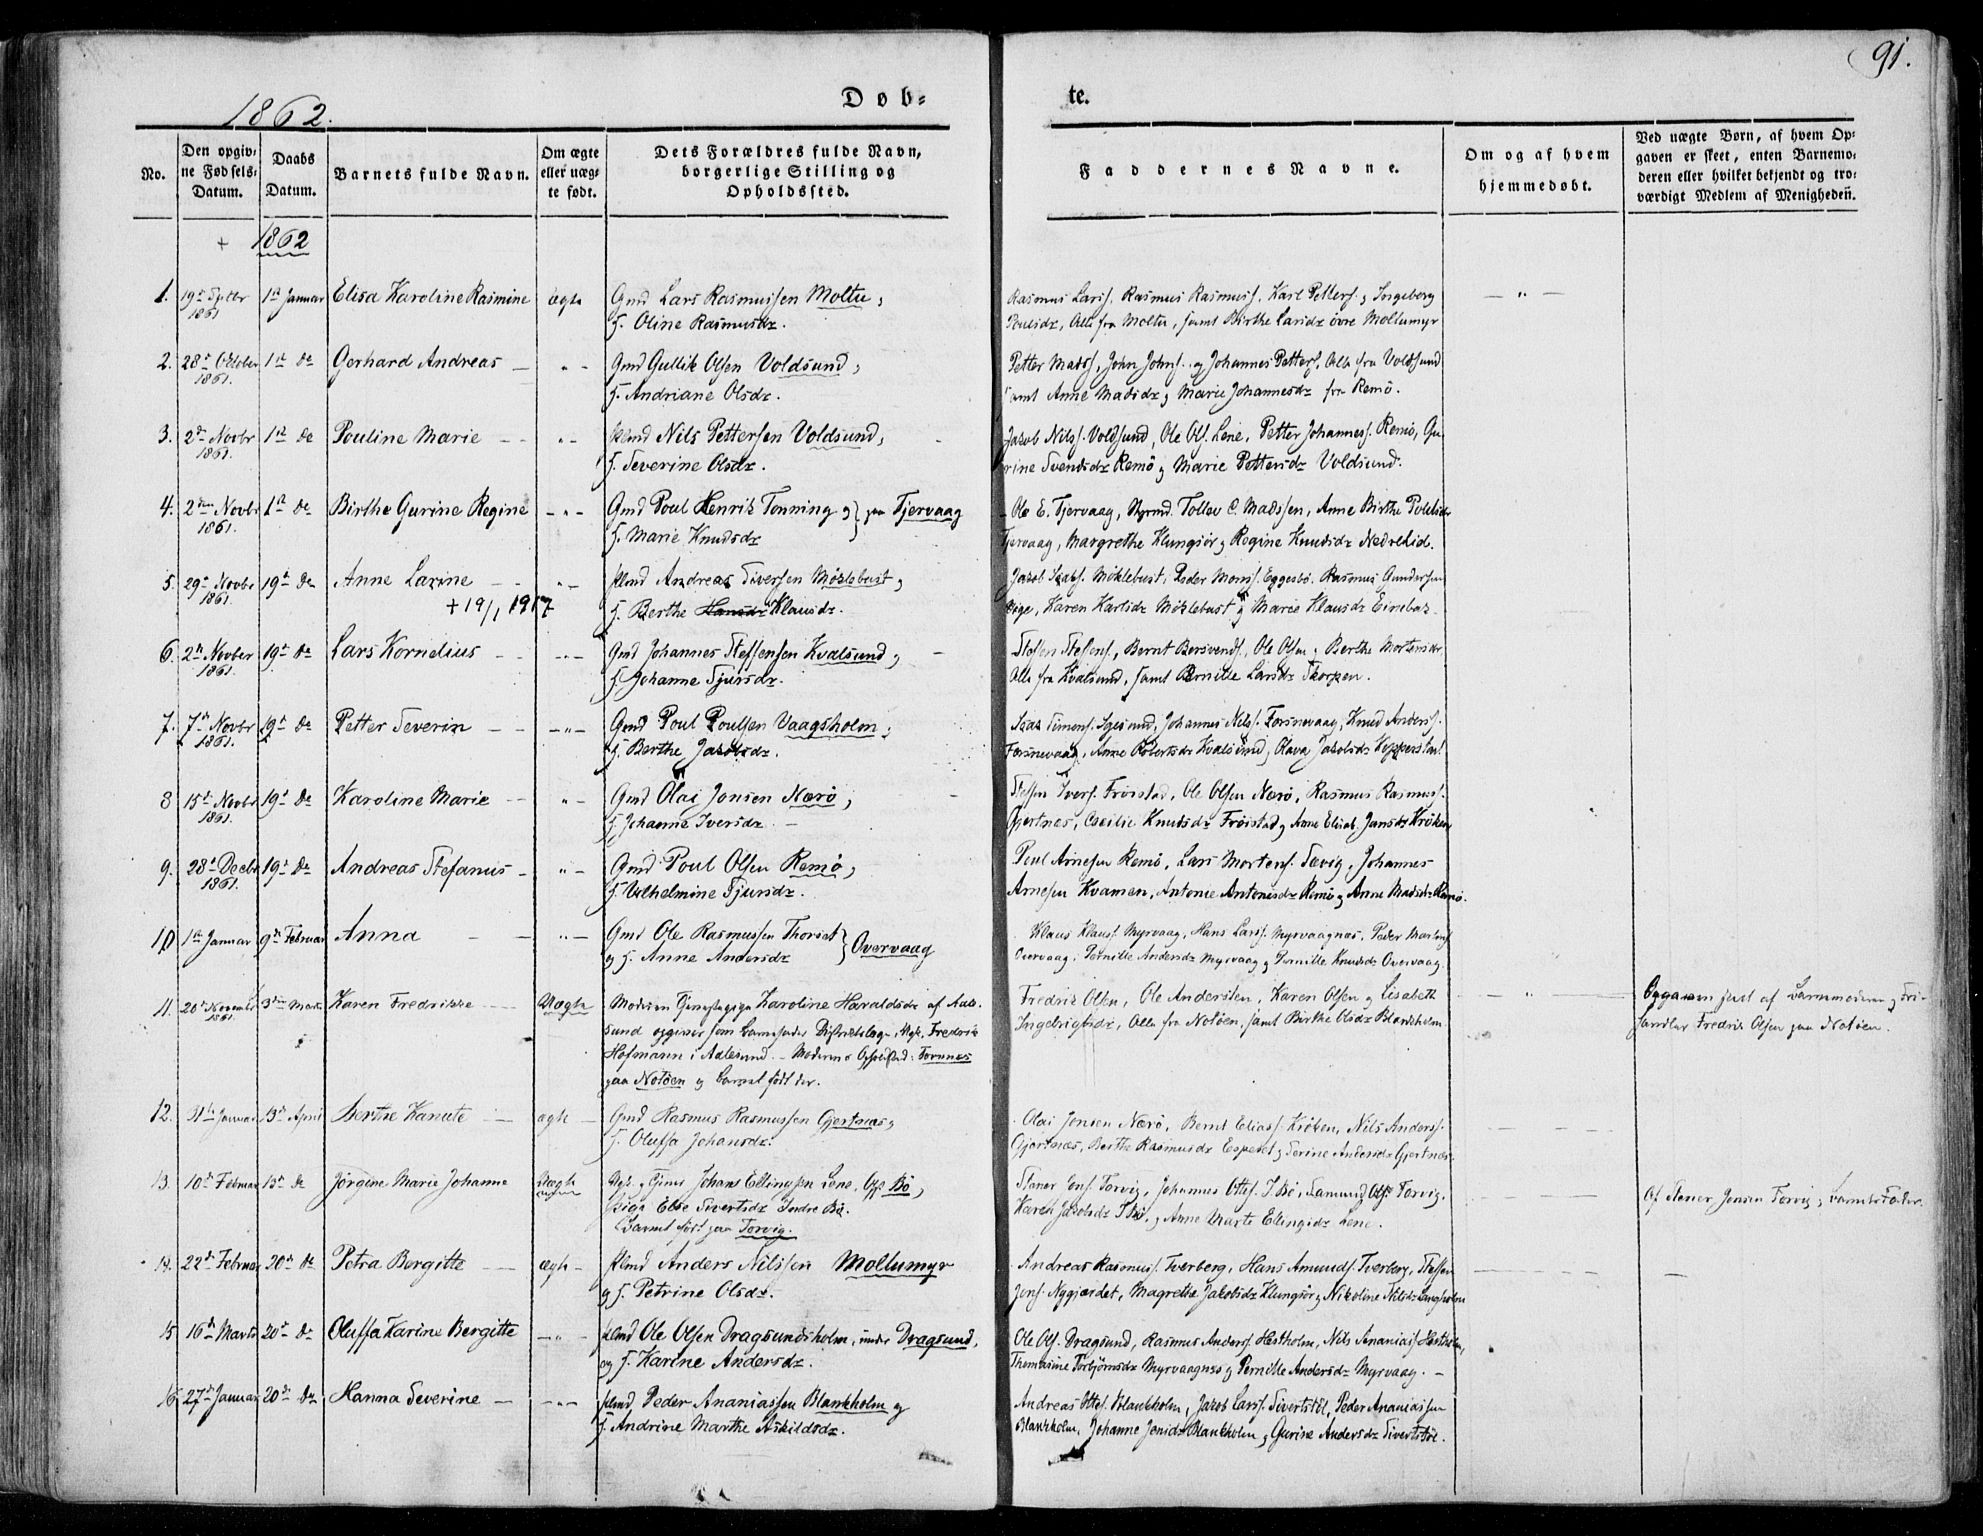 91.
1862.
Døb-
te.
No.
Den opgivne Fødsels-Datum.
Daabs Datum.
Barnets fulde Navn.
Om ægte eller uægte født.
Dets Forældres fulde Navn, borgerlige Stilling og Opholdssted.
Faddernes Navne.
Om og af hvem hjemmedøbt.
Ved uægte Børn, af hvem Opgaven er skeet, enten Barnemoderen eller hvilket bekjendt og troværdigt Medlem af Menigheden.
+ 1862
1. 19de Septbr 1861 1st Januar Elisa Karoline Rasmine ægte Gmd Lars Rasmussen Moltu,
H. Oline Rasmusdr.
Rasmus Larss. Rasmus Rasmuss. Karl Petters. & Ingeborg
Poulsdr, Alle fra Moltu, samt Birthe Larsdr øvre Moltumyr
2. 28de October 1861. 1st do Gerhard Andreas — " — Gmd Gullik Olsen Voldsund,
H. Andriane Olsdr.
Petter Madss, John Johns. og Johannes Petters, Alle fra Voldsund
samt Anne Madsdr & Marie Johannesdr fra Remø.
3. 2den Novbr 1861. 1st do Pouline Marie — " — Plmd Nils Pettersen Voldsund,
H. Severine Olsdr.
Jacob Nilss. Voldsund, Ole Ols. Lene, Petter Johanness. Remø, Gu-
rine Svendsdr Remø & Marie Pettersdr Voldsund.
4. 2den Novbr 1861. 1st do Birthe Gurine Regine — " — Gmd Poul Henrik Tonning & } paa Tjervaag
H. Marie Knudsdr
Ole E. Tjervaag, Tollev C. Madssen, Anne Birthe
Tjervaag, Margrethe Klungsør & Regine Knudsdr Nedrelid.
5. 29de Novbr 1861. 19de do Anne Laxine — " — Plmd Andreas Siversen Møklebust,
+ 19/1 1917
H. Berthe Hansdr Klausdr.
Jacob Møklebust, Peder Monss. Eggesbø. Rasmus Gundersen
Karen Karlsdr Møklebust & Marie Klausdr
6. 2den Novber 1861. 19de do Lars Kornelius — " — Gmd Johannes Steffensen Kvalsund,
H. Johanne Sjursdr.
Bernt Ole Olsen & Berthe Mortensdr
Alle fra Kvalsund, samt Pernille Larsdr Skorpen.
7. 7de Novbr 1861. 19de do Petter Severin — " — Gmd Poul Poulsen Vaagsholm,
H. Berthe Jacobsdr.
Johannes Nilss. Fosnevaag, Knud Anderss.
Fosnevaag, Anne Robertsdr Kvalsund & Olava Jacobsdr
8 15de Novbr 1861. 19de do Karoline Marie — " — Gmd Olai Jonsen Nærø,
H. Johanne Iversdr. —
Steffen Ivers. Frøistad, Ole Olsen Nærø, Rasmus Rasmuss.
Gjertnes, Cecilie Knudsdr Frøistad & Anne Elisab. Jansdr Krøken
9. 28de Decbr 1861. 19de do Andreas Stefanus — " — Gmd Poul Olsen Remø,
H. Vilhelmine Sjursdr.
Poul Arnesen Remø, Lars Mortens. Sævig, Johannes
Arnesen Kvamen, Antonie Antonisdr Remø & Anne Madsdr Remø.
10 1st Januar 9de Februar Anna — " — Gmd Ole Rasmussen Thorset } Overvaag
og H. Anne Andersdr
Klaus Klauss. Myrvaag, Hans Larss. Myrvaagnes, Peder Martens
Overvaag, Pernille Andersdr Myrvaag & Pernille Knudsdr Overvaag
11. 20de November 1861. 3die Marts Karen Fredrikke Uægte Moderen Karoline Haraldsdr af Aale-
sund opgiver som Barnefader Districtslæge, Fredrik
Hofmann i Aalesund. — Moderens Opholdssted: Tornnes
paa Notøen & Barnet født der.
Fredrik Olsen, Ole Andersen, Karen Olsen & Lisabeth
Ingebrigtsdr, Alle fra Notøen, samt Birthe Olsdr Blankholm
Opgaven skeet af Barnemoderen & Fri-
handler Fredrik Olsen paa Notøen.
12. 31te Januar 13de April Berthe Kanute — ægte — Gmd Rasmus Rasmussen Gjertnes,
H. Oluffa Johansdr.
Olai Jonsen Nærø, Bernt Eliass. Krøken, Nils Anderss.
Gjertnæs, Berthe Rasmusdr Espeset & Serine Andersdr Gjertnæs
13. 10de Februar 13de do Jørgine Marie Johanne Uægte Johans Ellingsen Lene, Opf. Bø,
Pige Else Sivertsdr Indre Bø.
Barnet født paa Torvig.
Staner Jens. Torvig, Johannes Ottes. I. Bø, Samund Ols. Torvig,
Karen Jacobsdr I. Bø, & Anne Marte Ellingsdr Lene.
Af Staner Jensen Torvig, Barnets Fader.
14. 22de Februar 20de do Petra Bergitte — ægte — Plmd Anders Nilssen Moltumyr
& H. Petrine Olsdr.
Andreas Rasmuss. Tverberg, Hans Amunds. Tverberg, Steffen
Jons. Myggjærdet, Magrethe Jakobsdr Klungsør & Nikoline Nilsdr Langholm
15 16de Marts 20de do Oluffa Karine Bergitte — " — Plmd Ole Olsen Dragsundsholm, under Dragsund,
og H. Karine Andersdr.
Ole Ols. Dragsund, Rasmus Anderss. Hestholm, Nils Ananiass. Hestholm,
Thomasine Torbjørnsdr Myrvaagnes & Pernille Andersdr Myrvaag. —
16 27de Januar 20de do Hanna Severine — " — Plmd Peder Ananiassen Blankholm &
H. Andrine Marthe Askildsdr.
Andreas Ottes. Blankholm, Jacob Larss. Sivertstøl, Peder Ananiassen
Blankholm, Johanne Jonsdr Blankholm & Gurine Andersdr Sivertstøl.